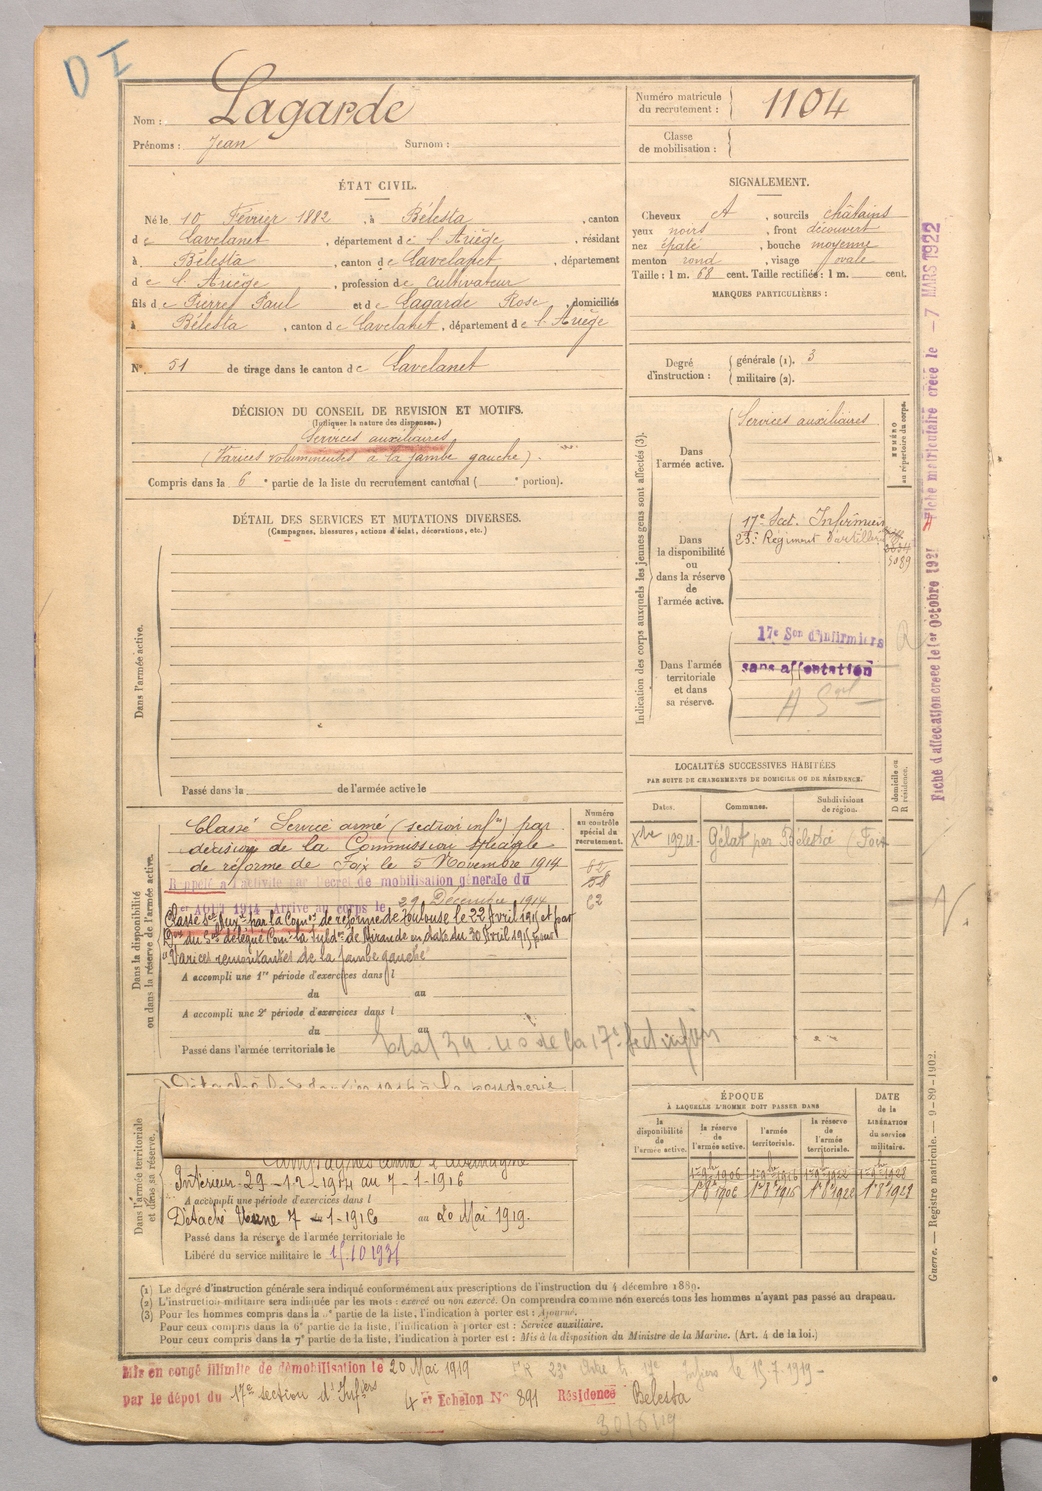 D I
Nom : Lagarde
Prénoms : Jean Surnom :
Numéro matricule du recrutement : 1104
Classe de mobilisation :
ÉTAT CIVIL.
Né le 10 Février 1882, à Bélesta, canton
de Lavelanet, département de l'Ariège, résidant
à Bélesta, canton de Lavelanet, département
de l'Ariège, profession de cultivateur
fils de Pierre Paul et de Lagarde Rose, domiciliés
à Bélesta, canton de Lavelanet, département de l'Ariège
N° 51 de tirage dans le canton de Lavelanet
SIGNALEMENT.
Cheveux et, sourcils châtains
yeux noirs, front découvert
nez épaté, bouche moyenne
menton rond, visage ovale
Taille : 1 m. 68 cent. Taille rectifiée : 1 m. cent.
MARQUES PARTICULIÈRES :
Degré d'instruction : générale (1). 3
militaire (2).
DÉCISION DU CONSEIL DE REVISION ET MOTIFS.
(Indiquer la nature des dispenses.)
Services auxiliaires
(Varices volumineuses à la jambe gauche).
Compris dans la 6e partie de la liste du recrutement cantonal ( e portion).
DÉTAIL DES SERVICES ET MUTATIONS DIVERSES.
(Campagnes, blessures, actions d'éclat, décorations, etc.)
Dans l'armée active.
Passé dans la de l'armée active le
Indication des corps auxquels les jeunes gens sont affectés (3).
NUMÉRO au répertoire du corps.
Dans l'armée active.
Services auxiliaires
Dans la disponibilité ou dans la réserve de l'armée active.
17e Sect. Infirmiers
23e Régiment d'artillerie
5089
Dans l'armée territoriale et dans sa réserve.
17e Son d'Infirmiers
sans affectation
Fiche d'affectation créée le 1er Octobre 1921
Fiche matriculaire créée le - 7 MARS 1922
LOCALITÉS SUCCESSIVES HABITÉES
PAR SUITE DE CHANGEMENTS DE DOMICILE OU DE RÉSIDENCE.
Dates. Communes. Subdivisions de région. D domicile ou R résidence.
Xbre 1924 Gélat par Bélesta (Foix
Dans la disponibilité ou dans la réserve de l'armée active.
Numéro au contrôle spécial du recrutement.
62
Classé Service armé (section infre) par
décision de la Commission spéciale
de réforme de Foix le 5 Novembre 1914
Rappelé à l'activité par Décret de mobilisation générale du
1er Août 1914 Arrivé au corps le 29 Décembre 1914
Classé Sce Auxre par la Comon de réforme de Toulouse le 22 Avril 1915 et par
Don du Sce délégué Comt la Subdon de Mirande en date du 30 Avril 1915 pour
"Varices remontantes de la jambe gauche"
A accompli une 1re période d'exercices dans l
du au
A accompli une 2e période d'exercices dans l
du au
Passé dans l'armée territoriale le
Dans l'armée territoriale et dans sa réserve.
Campagnes contre l'Allemagne
Intérieur 29-12-1914 au 7-1-1916
A accompli une période d'exercices dans l
Détaché Usine 7-1-1916 au 20 Mai 1919.
Passé dans la réserve de l'armée territoriale le
Libéré du service militaire le 15/10 1931
ÉPOQUE
À LAQUELLE L'HOMME DOIT PASSER DANS
la disponibilité de l'armée active. la réserve de l'armée active. l'armée territoriale. la réserve de l'armée territoriale. DATE de la LIBÉRATION du service militaire.
1er 9bre 1906 1er 9bre 1916 1er 9bre 1922 1er 9bre 1928
Guerre. — Registre matricule. — 9-89-1902.
(1) Le degré d'instruction générale sera indiqué conformément aux prescriptions de l'instruction du 4 décembre 1889.
(2) L'instruction militaire sera indiquée par les mots : exercé ou non exercé. On comprendra comme non exercés tous les hommes n'ayant pas passé au drapeau.
(3) Pour les hommes compris dans la partie de la liste, l'indication à porter est : Ajourné.
Pour ceux compris dans la 6e partie de la liste, l'indication à porter est : Service auxiliaire.
Pour ceux compris dans la 7e partie de la liste, l'indication à porter est : Mis à la disposition du Ministre de la Marine. (Art. 4 de la loi.)
Mis en congé illimité de démobilisation le 20 Mai 1919
par le dépôt du 17e section d'Infiers 4 er Echelon N° 891 Résidence Bélesta
le 15.7.1919
30/6/19